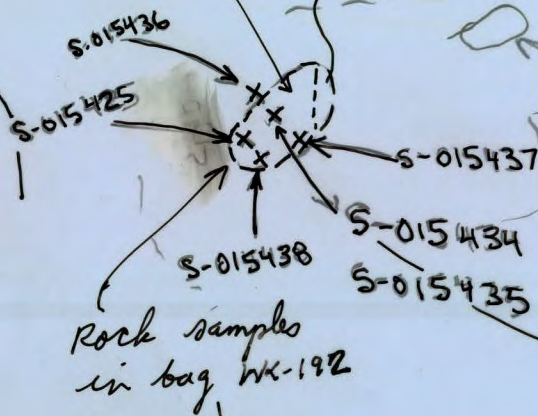 S-015436
S-015425
S-015437
S-015434
S-015438
S-015435
Rock samples
in bag WK-192